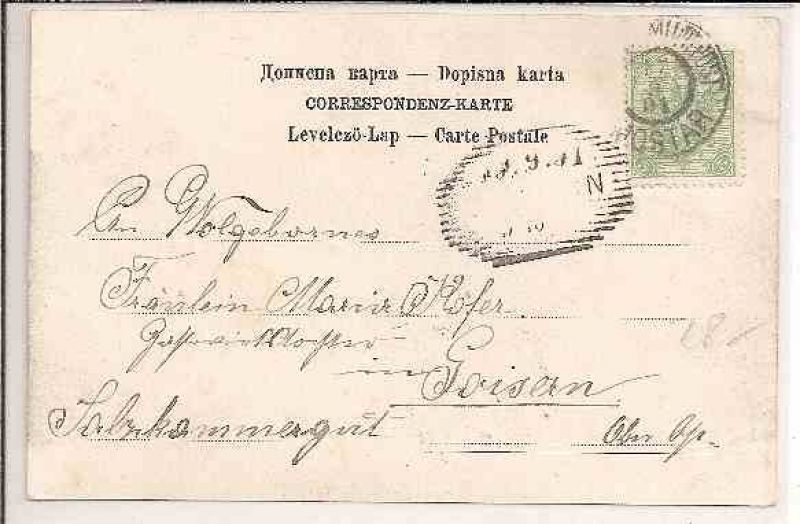 Дописна карта — Dopisna karta
CORRESPONDENZ-KARTE
Levelező-Lap — Carte Postale
MOSTAR
N
Wolgebornes
Fräulein Maria Kofer
Gastwirtstochter
in Goisern
Salzkammergut
Ober Op.
28